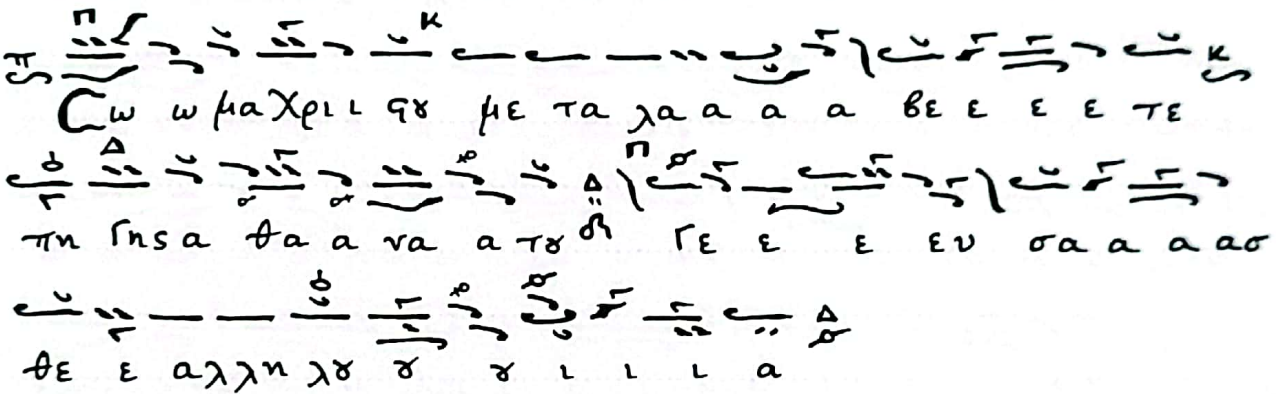 Σω ω μα Χρι ι ςȣ με τα λα α α α α βε ε ε ε τε
πη Γης α θα α να α τȣ Γε ε ε ευ σα α α ασ
θε ε αλλη λȣ ȣ ȣ ι ι ι α